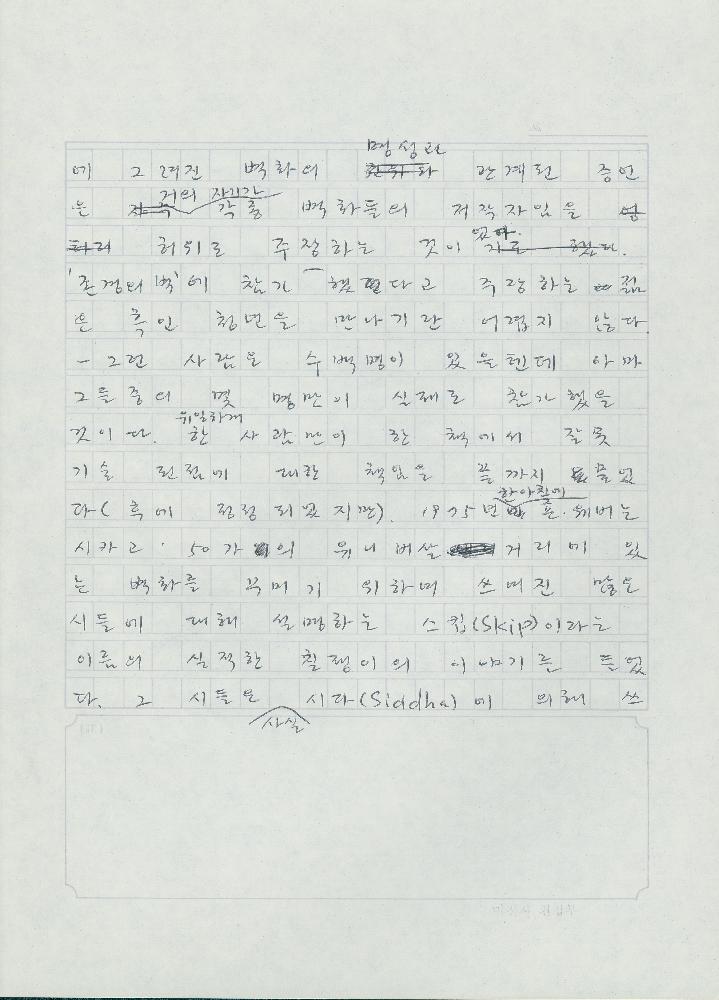 명성과
에 그려진 벽화의 관계된 증언
거의 자기가
은 각종 벽화들의 저작자임을
허위로 주장하는 것이 었다.
'존경의 벽'에 참가 했다고 주장하는 젊
은 흑인 청년을 만나기란 어렵지 않다.
- 그런 사람은 수백명이 있을텐데 아마
그들 중의 몇 명만이 실제로 참가했을
것이다. 한 사람만이 한 책에서 잘못
유일하게
기술 된점에 대한 책임을 끝까지 물었
한아침에
다(후에 정정 되었지만). 1975년 죤·웨버는
시카고·50가의 유니버살 거리에 있
는 벽화를 꾸미기 위하여 쓰여진 많은
시들에 대해 설명하는 스킾(Skip)이라는
이름의 실직한 훨쟁이의 이야기를 들었
다. 그 시들은 시다(Siddha)에 의해 쓰
사실